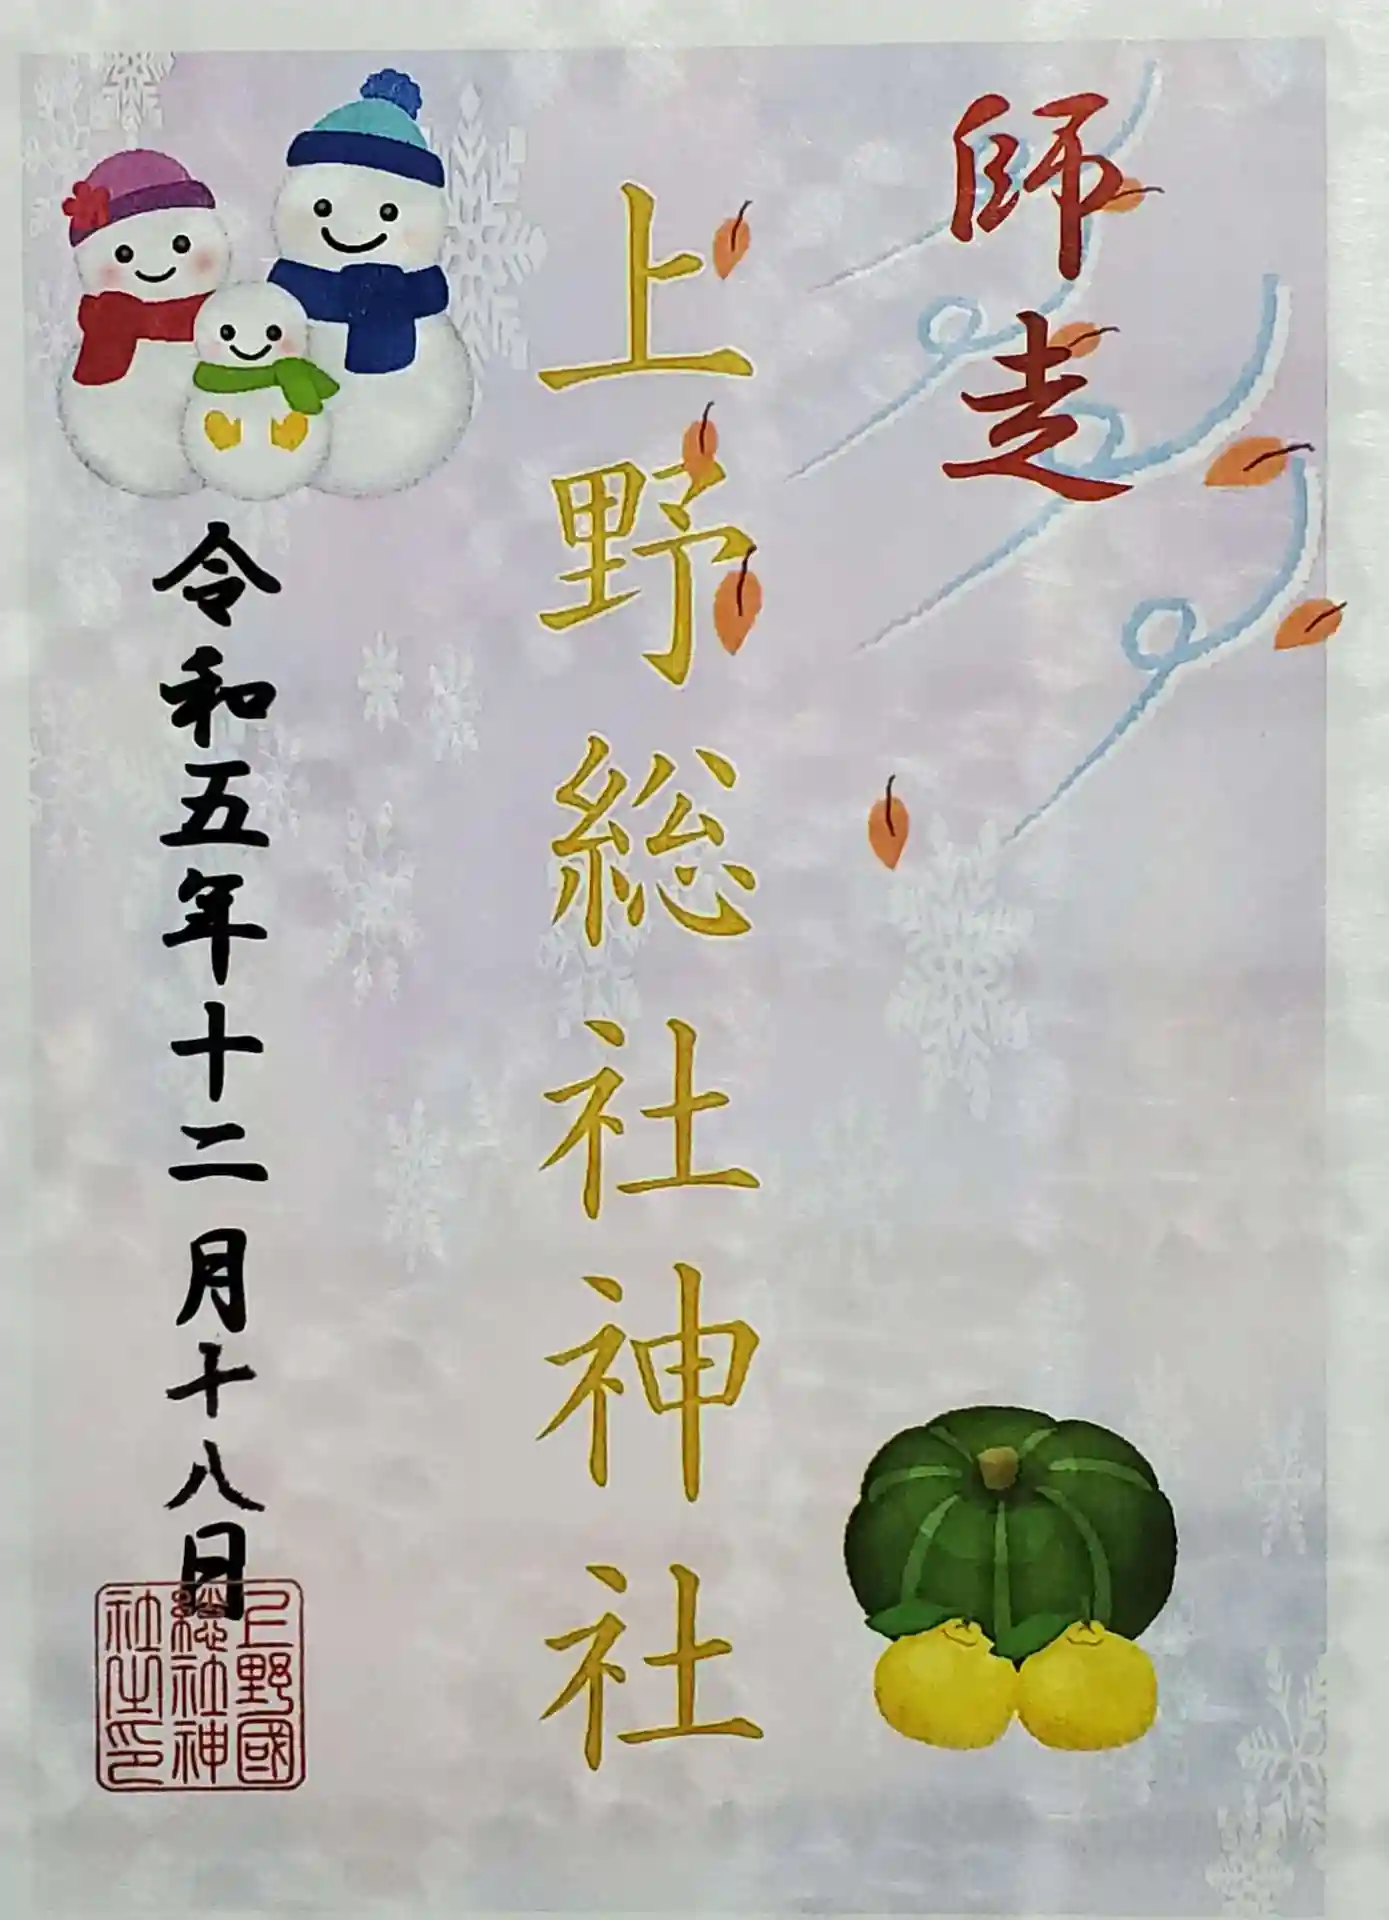 師走
上野総社神社
令和五年十二月十八日
上野國
總社神
社之印